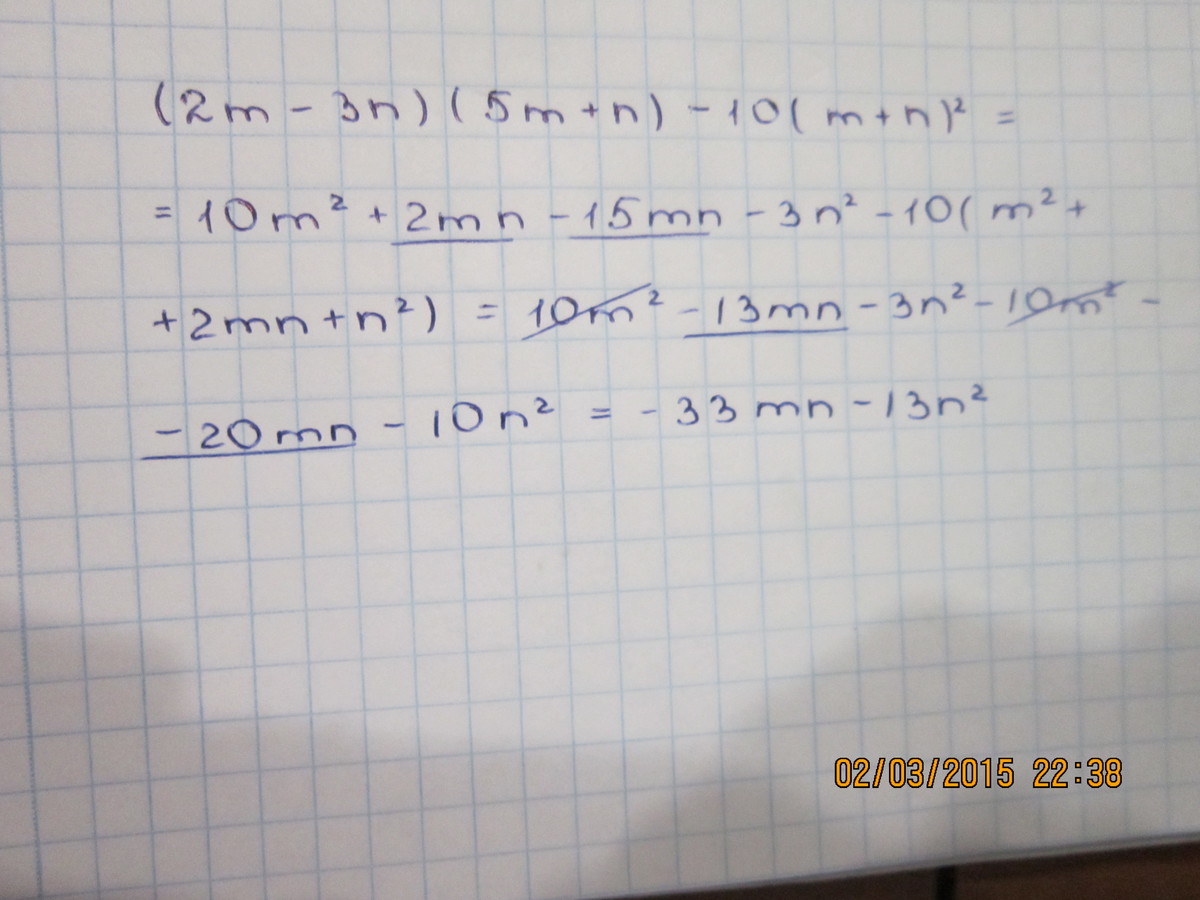 (2m - 3n)(5m + n) - 10(m + n)² =
= 10m² + 2mn - 15mn - 3n² - 10(m² +
+ 2mn + n²) = 10m² - 13mn - 3n² - 10m² -
- 20mn - 10n² = - 33mn - 13n²
02/03/2015 22:38